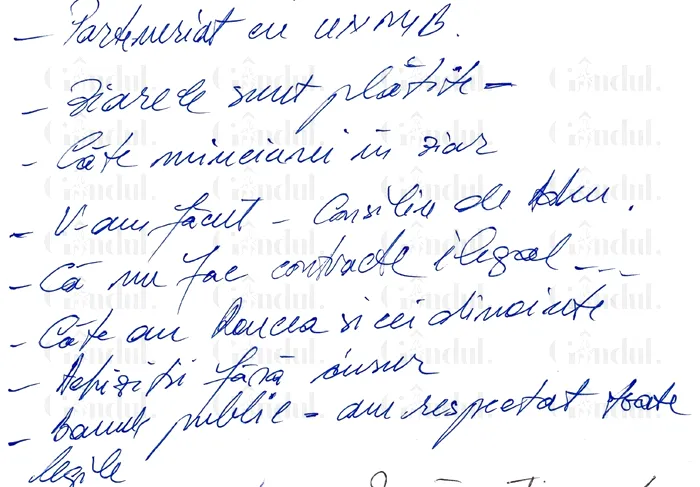 - Parteneriat cu UNMB.
- Ziarele sunt plătite -
- Câte minciuni în ziar
- V-am făcut - Consiliu de Adm.
- Că nu fac contracte ilegal ---
- Câte au și cei dinainte
- Achiziții fără
- Banul public - am respectat toate
legile